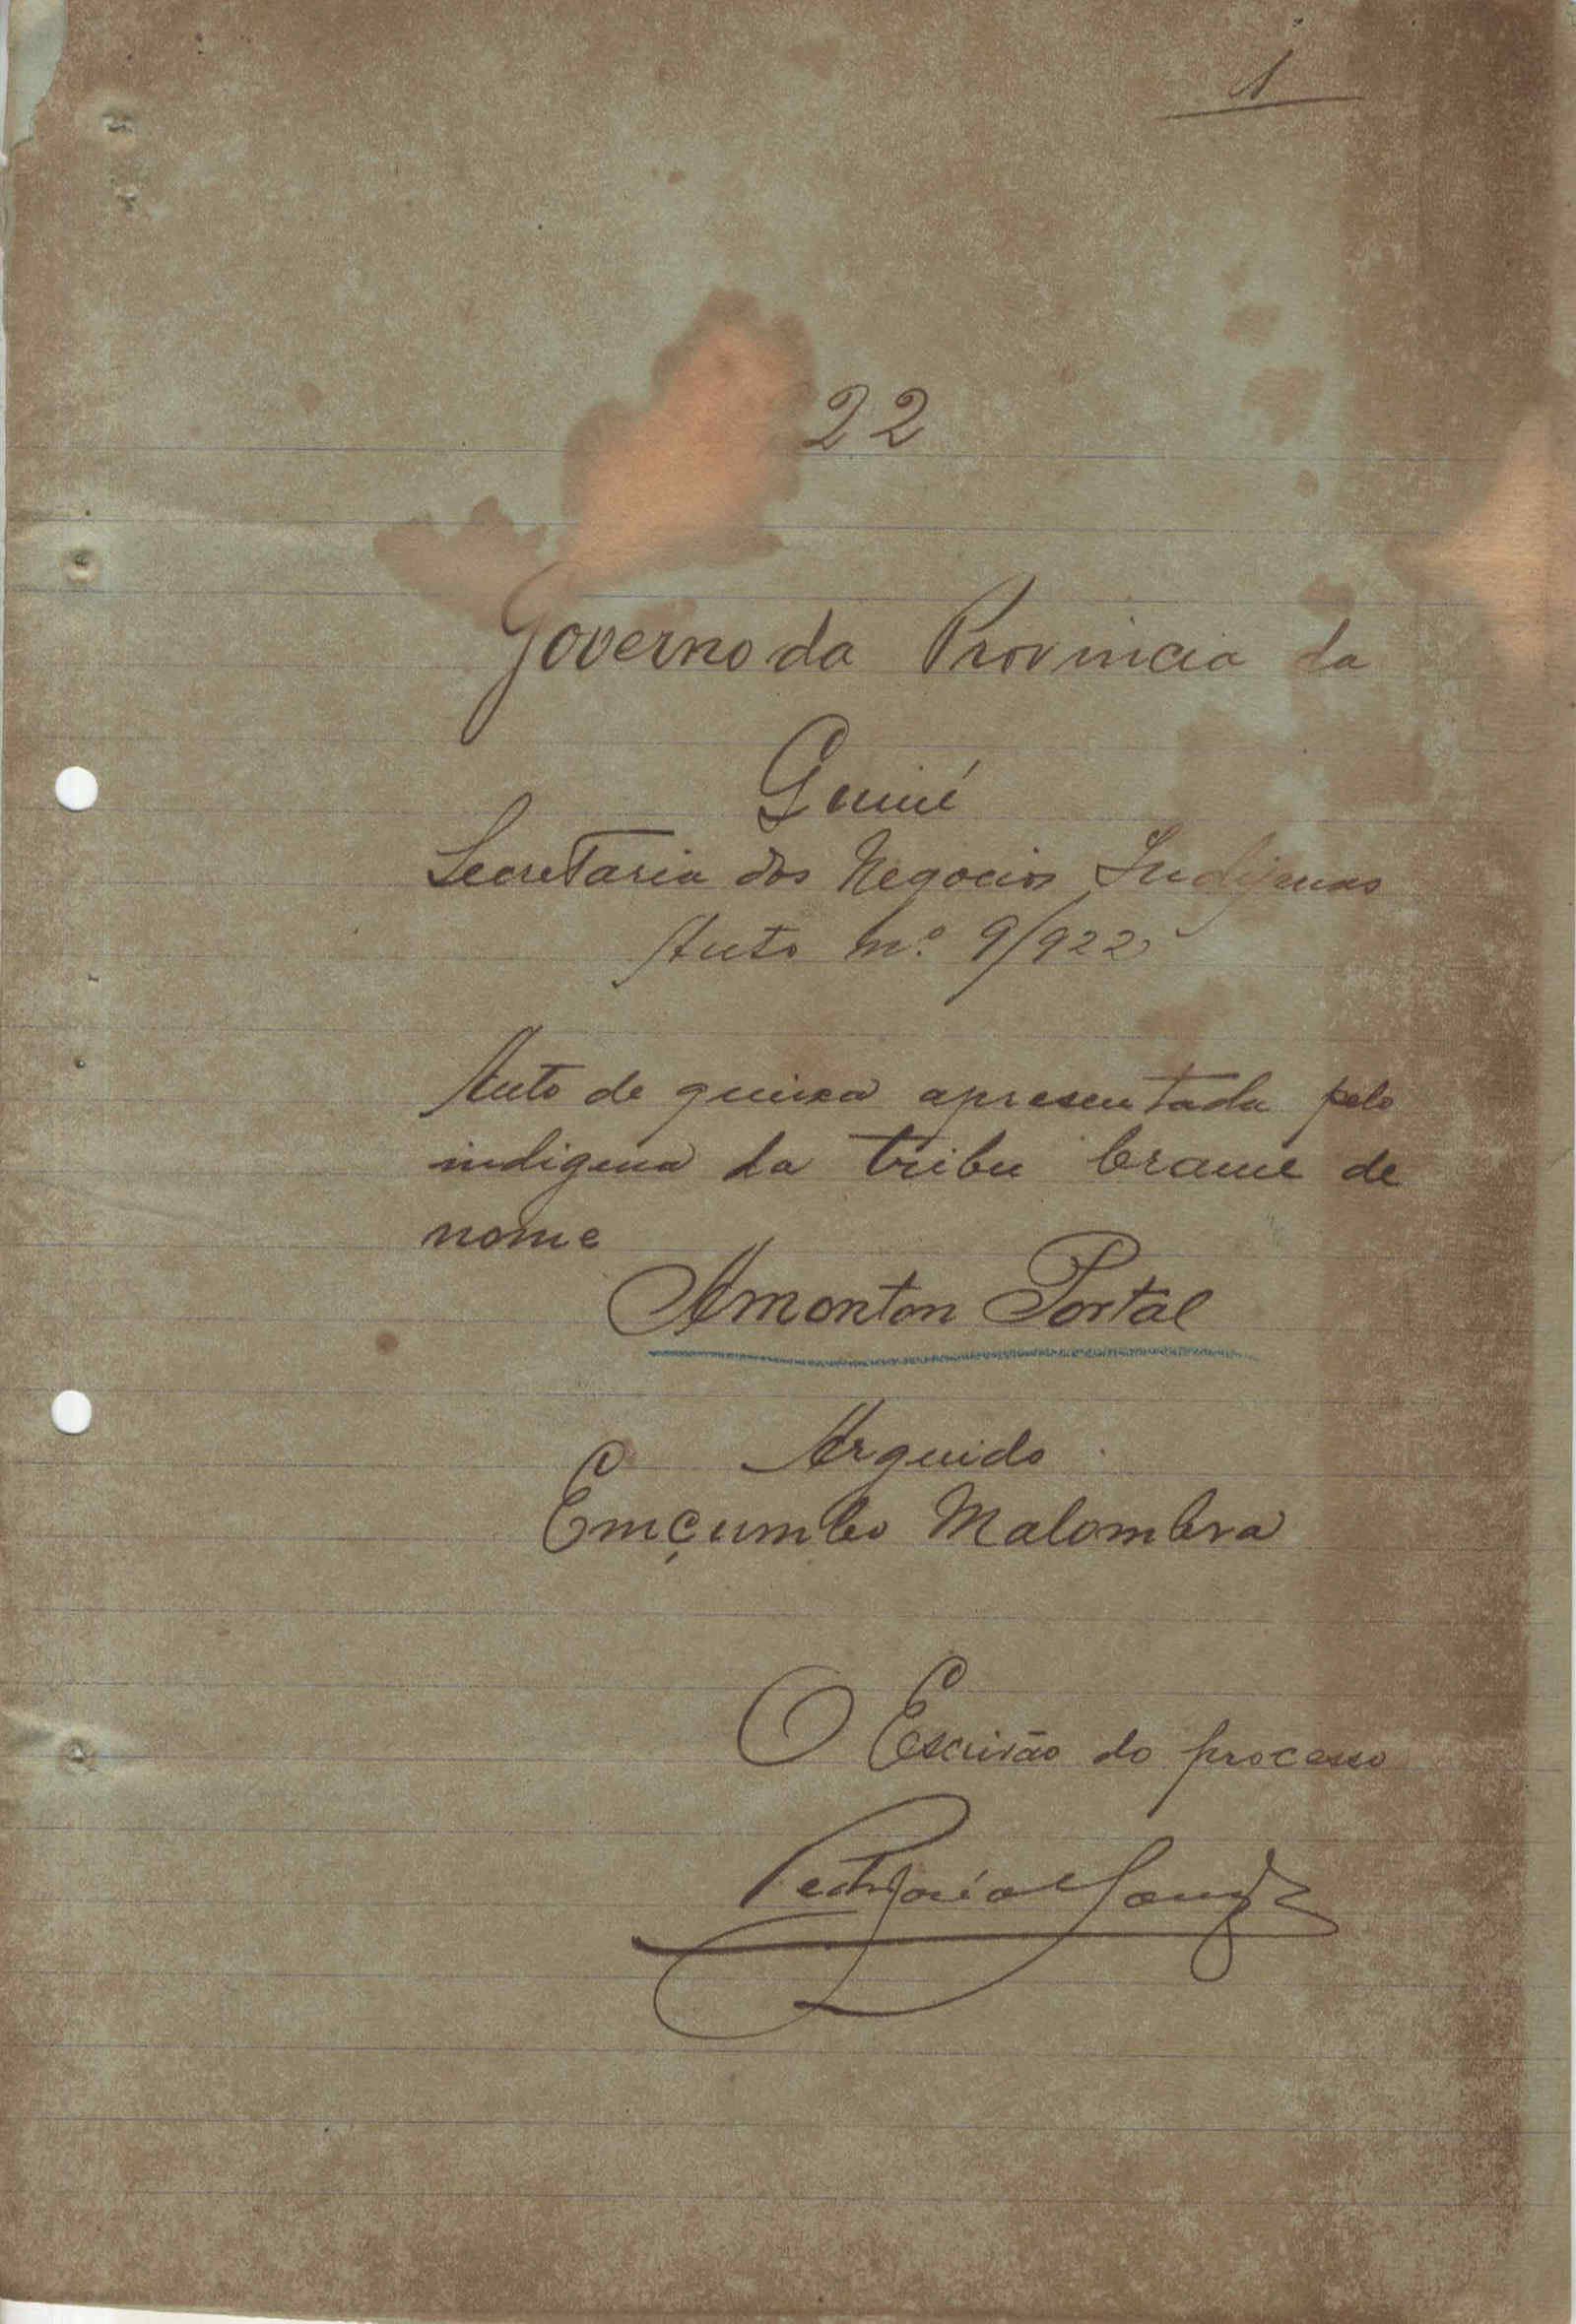 1
22
Governo da Provincia da
Guiné
Secretaria dos Negocios Indigenas
Auto nº 9/922
Auto de queixa apresentada pelo
indigena da tribu brame de
nome
Amonton Portal
Arguido
Emçumbo Malombra
O Escrivão do processo